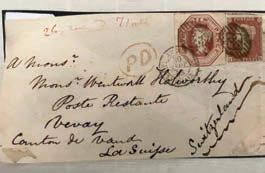 PD
A Monsr.
Monsr. Wentworth Holworthy
Poste Restante
Vevay
Canton de Vaud
La Suisse
Switzerland